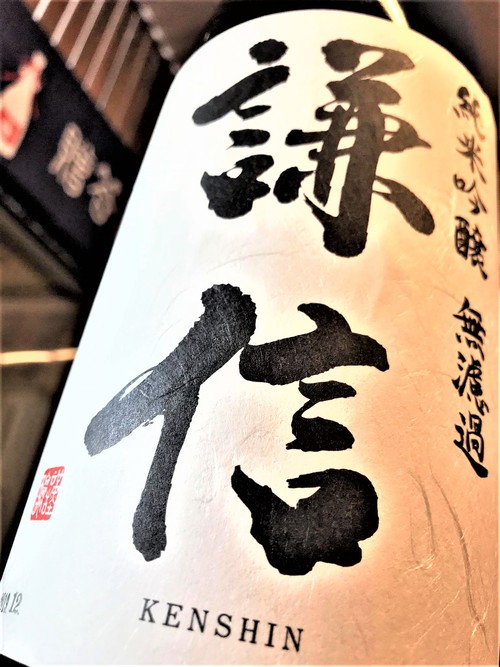 謙信
純米吟醸 無濾過
KENSHIN
12.